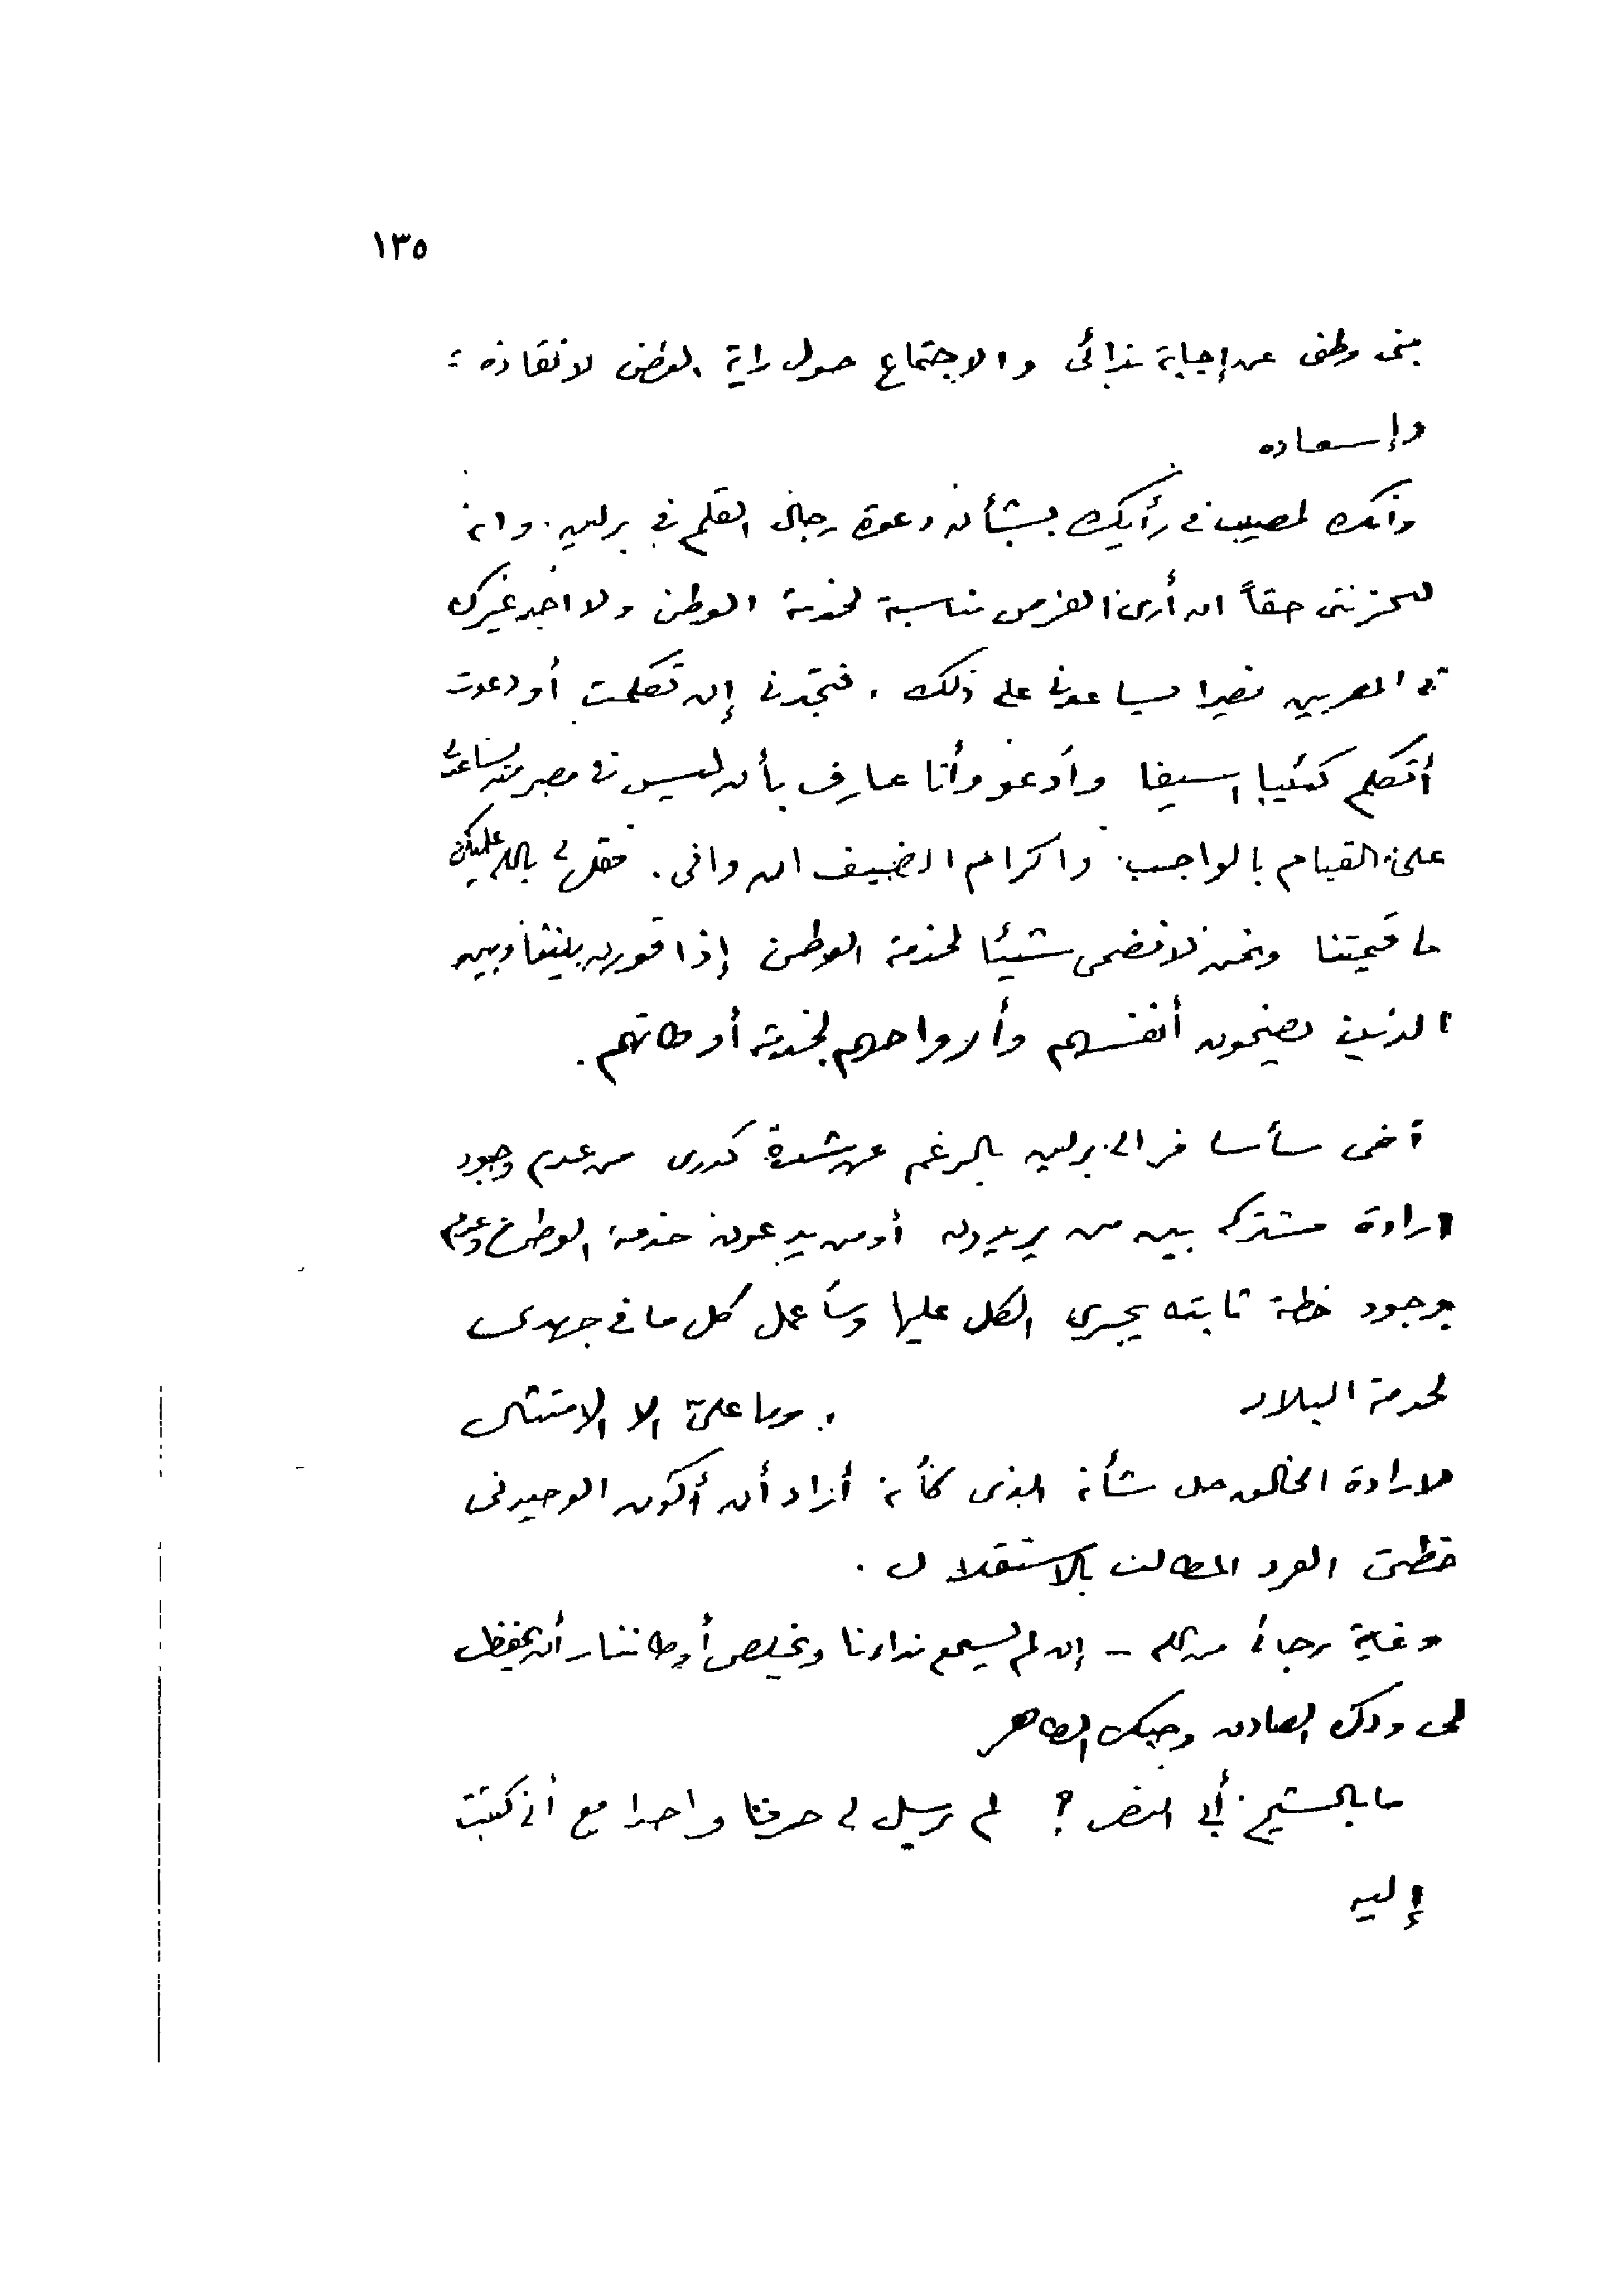 ١٣٥
بنى وطنى عن إجابة ندائى والاجتماع حول راية الوطن لانقاذه
وإسعاده
وانك لمصيب فى رأيك بشأن دعوة رجال القلم فى برلين. وانه
ليحزننى حقاً ان أرى الفرص مناسبة لخدمة الوطن ولا اجد غيرك
من المصريين نصيرا يساعدنى على ذلك. فتجدنى إن تكلمت أو دعوت
أتكلم كئيبا اسيفا وأدعو وأنا عارف بأن ليس فى مصر من يساعدنى
على القيام بالواجب واكرام الضيف ان وافى. فقل لى بالله عليك
ما قيمتنا ونحن لا نضحى شيئا لخدمة الوطن إذا قورن بيننا وبين
الذين يضحون أنفسهم وأرواحهم لخدمة أوطانهم.
أخى سأسافر الى برلين بالرغم عن شدة كدرى من عدم وجود
ارادة مشتركه بين من يريدون أو من يدعون خدمة الوطن وعدم
وجود خطة ثابته يجرى الكل عليها وسأعمل كل ما فى جهدى
لخدمة البلاد . وما علىّ الا الامتثال
لارادة الخالق جل شأنه الذى كأنه أراد أن أكون الوحيد فى
خطتى الفرد المطالب بالاستقلال.
وغاية رجائى من الله - إن لم يسمع نداءنا ويخلص أوطاننا - أن يحفظ
لى ودك الصادق وحبك الطاهر
ما بال الشيخ أبى النصر؟ لم يرسل لى حرفا واحدا مع أنى كتبت
إليه